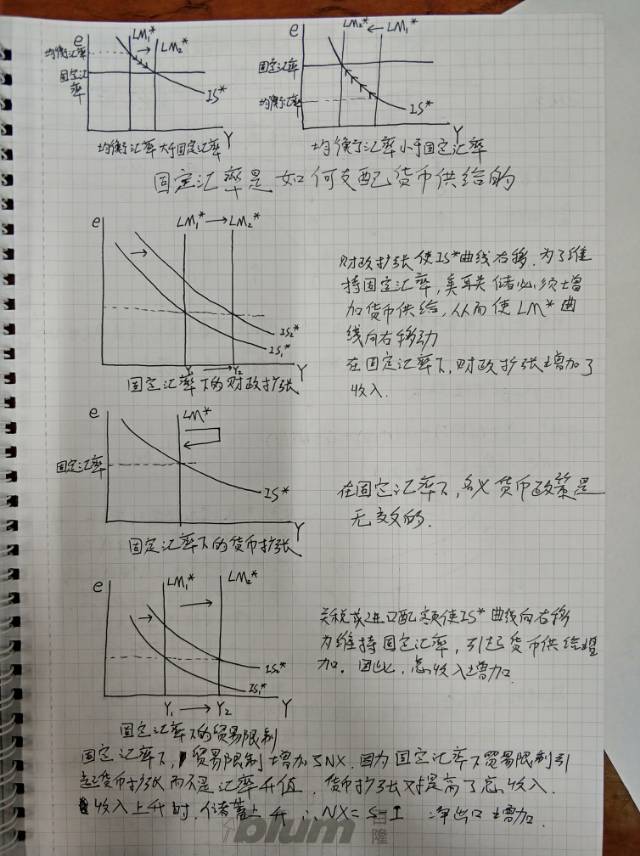 e LM₁* → LM₂*
均衡汇率
固定汇率
IS*
Y
均衡汇率大于固定汇率
e LM₂* ← LM₁*
固定汇率
均衡汇率
IS*
Y
均衡汇率小于固定汇率
固定汇率是如何支配货币供给的
e LM₁* → LM₂*
IS₂*
IS₁*
Y₁ → Y₂ Y
固定汇率下的财政扩张
财政扩张使IS*曲线右移.为了维
持固定汇率,美联储必须增
加货币供给,从而使LM*曲
线向右移动
在固定汇率下,财政扩张增加了
收入.
e LM*
固定汇率
IS*
Y
固定汇率下的货币扩张
在固定汇率下,名义货币政策是
无效的.
e LM₁* → LM₂*
IS₂*
IS₁*
Y₁ → Y₂ Y
固定汇率下的贸易限制
关税或进口配额使IS*曲线向右移
为维持固定汇率,引起货币供给增
加.因此,总收入增加.
固定汇率下,贸易限制增加了NX.因为固定汇率下贸易限制引
起货币扩张而不是汇率升值,货币扩张又提高了总收入.
收入上升时,储蓄上升 ∴NX=S-I 净出口增加.
blum 百隆